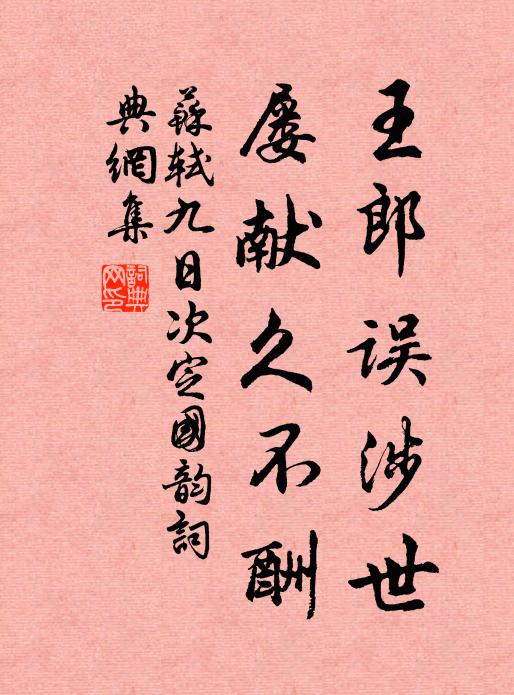 王郎误涉世
屡献久不酬
蘇軾九日次定國韵詞
典網集
詞典網印